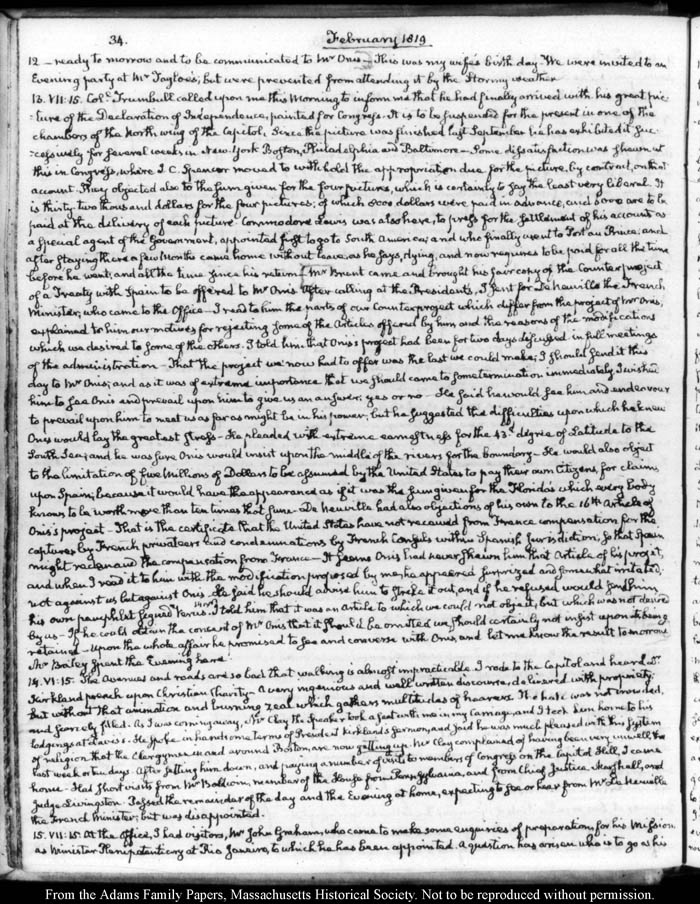 34.
February 1819
12 - ready to morrow and to be communicated to Mr Onis - This was my wife's birth day. We were invited to an
Evening party at Mr Tayloe's; but were prevented from attending it by the Stormy weather
13. VII:15. Colo. Trumbull called upon me this Morning to inform me that he had finally arrived with his great pic-
ture of the Declaration of Independence, painted for Congress. It is to be suspended for the present in one of the
chambers of the North wing of the Capitol. Since the picture was finished last September he has exhibited it suc-
cessively for several weeks in New-York Boston, Philadelphia and Baltimore - Some dissatisfaction was shewn at
this in Congress, where J. C. Spencer moved to withhold the appropriation due for the picture, by contract, on that
account. They objected also to the sum given for the four pictures, which is certainly to say the least very liberal. It
is thirty two thousand dollars for the four pictures; of which 8000 dollars were paid in advance, and 6000 are to be
paid at the delivery of each picture Commodore Lewis was also here, to press for the settlement of his account as
a special agent of the Government, appointed first to go to South America; and who finally went to Port au Prince; and
after staying there a few Months came home without leave, as he says, dying, and now requires to be paid for all the time
before he went, and all the time since his return. Mr Brent came and brought his fair copy of the Counter project
of a Treaty with Spain to be offered to Mr Onis After calling at the President's, I sent for De Neuville the French
Minister, who came to the Office - I read to him the parts of our Counterproject which differ from the project of Mr Onis,
explained to him our motives for rejecting some of the Articles offered by him and the reasons of the modifications
which we desired to some of the others. I told him that Onis's project had been for two days discussed in full meetings
of the administration - That the project we now had to offer was the last we could make; I should send it this
day to Mr Onis; and as it was of extreme importance that we should come to some termination immediately I wished
him to see Onis and prevail upon him to give us an answer; yes or no - He said he would see him and endeavour
to prevail upon him to meet us as far as might be in his power; but he suggested the difficulties upon which he knew
Onis would lay the greatest stress - He pleaded with extreme earnestness for the 43d degree of Latitude to the
South Sea; and he was sure Onis would insist upon the middle of the rivers for the boundary - He would also object
to the limitation of five Millions of Dollars to be assumed by the United States to pay their own Citizens, for claims
upon Spain; because it would have the appearance as if it was the sum given for the Florida's which every body
knows to be worth more than ten times that sum - De Neuville had also objections of his own to the 16th Article of
Onis's project - That is the certificate that the United States have not received from France compensation for the
captures by French privateers and condemnations by French Consuls within Spanish Jurisdiction; so that Spain
might reclaim the compensation from France - It seems Onis had never shewn him that Article of his project,
and when I read it to him with the modification proposed by me, he appeared surprized and somewhat irritated;
not against us but against Onis. He said he should advise him to strike it out, and if he refused would send him
his own pamphlet signed Verus. I told him that it was an Article to which we could not object, but which was not desired
by us - If he could obtain the consent of Mr Onis that it should be omitted, we should certainly not insist upon its being
retained - Upon the whole affair he promised to see and converse with Onis, and let me know the result to morrow
Mr Bailey spent the Evening here.
14. VI:15. The Avenues and roads are so bad that walking is almost impracticable I rode to the Capitol and heard Dr
Kirkland preach upon Christian Charity - A very ingenious and well written discourse, delivered with propriety;
but without that animation and burning zeal which gathers multitudes of hearers. The hall was not crowded,
and scarcely filled. As I was coming away, Mr Clay the Speaker took a seat with me in my carriage, and I took him home to his
lodgings at Davis's. He spoke in handsome terms of President Kirkland's Sermon, and said he was much pleased with this system
of religion that the Clergymen in and around Boston, are now getting up. Mr Clay complained of having been very unwell, the
last week or ten days. After setting him down, and paying a number of visits to members of Congress on the Capitol Hill, I came
home - Had short visits from Mr Baldwin, member of the House from Pennsylvania, and from Chief Justice Marshall, and
Judge Livingston. Passed the remainder of the day and the Evening at home, expecting to see or hear from Mr De Neuville
the French Minister; but was disappointed.
15. VII:15. At the Office, I had visitors, Mr John Graham, who came to make some enquiries of preparation for his Mission
as Minister Plenipotentiary at Rio Janeiro, to which he has been appointed. A question has arisen who is to go as his
From the Adams Family Papers, Massachusetts Historical Society. Not to be reproduced without permission.